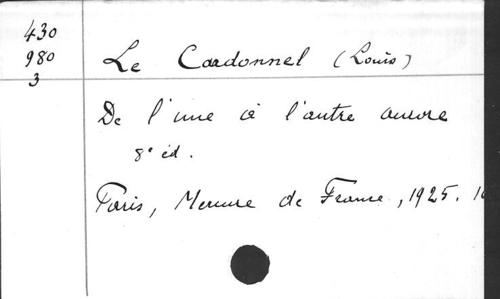 430
980
3
Le Cardonnel (Louis)
De l'une à l'autre aurore
8e éd.
Paris, Mercure de France, 1925.